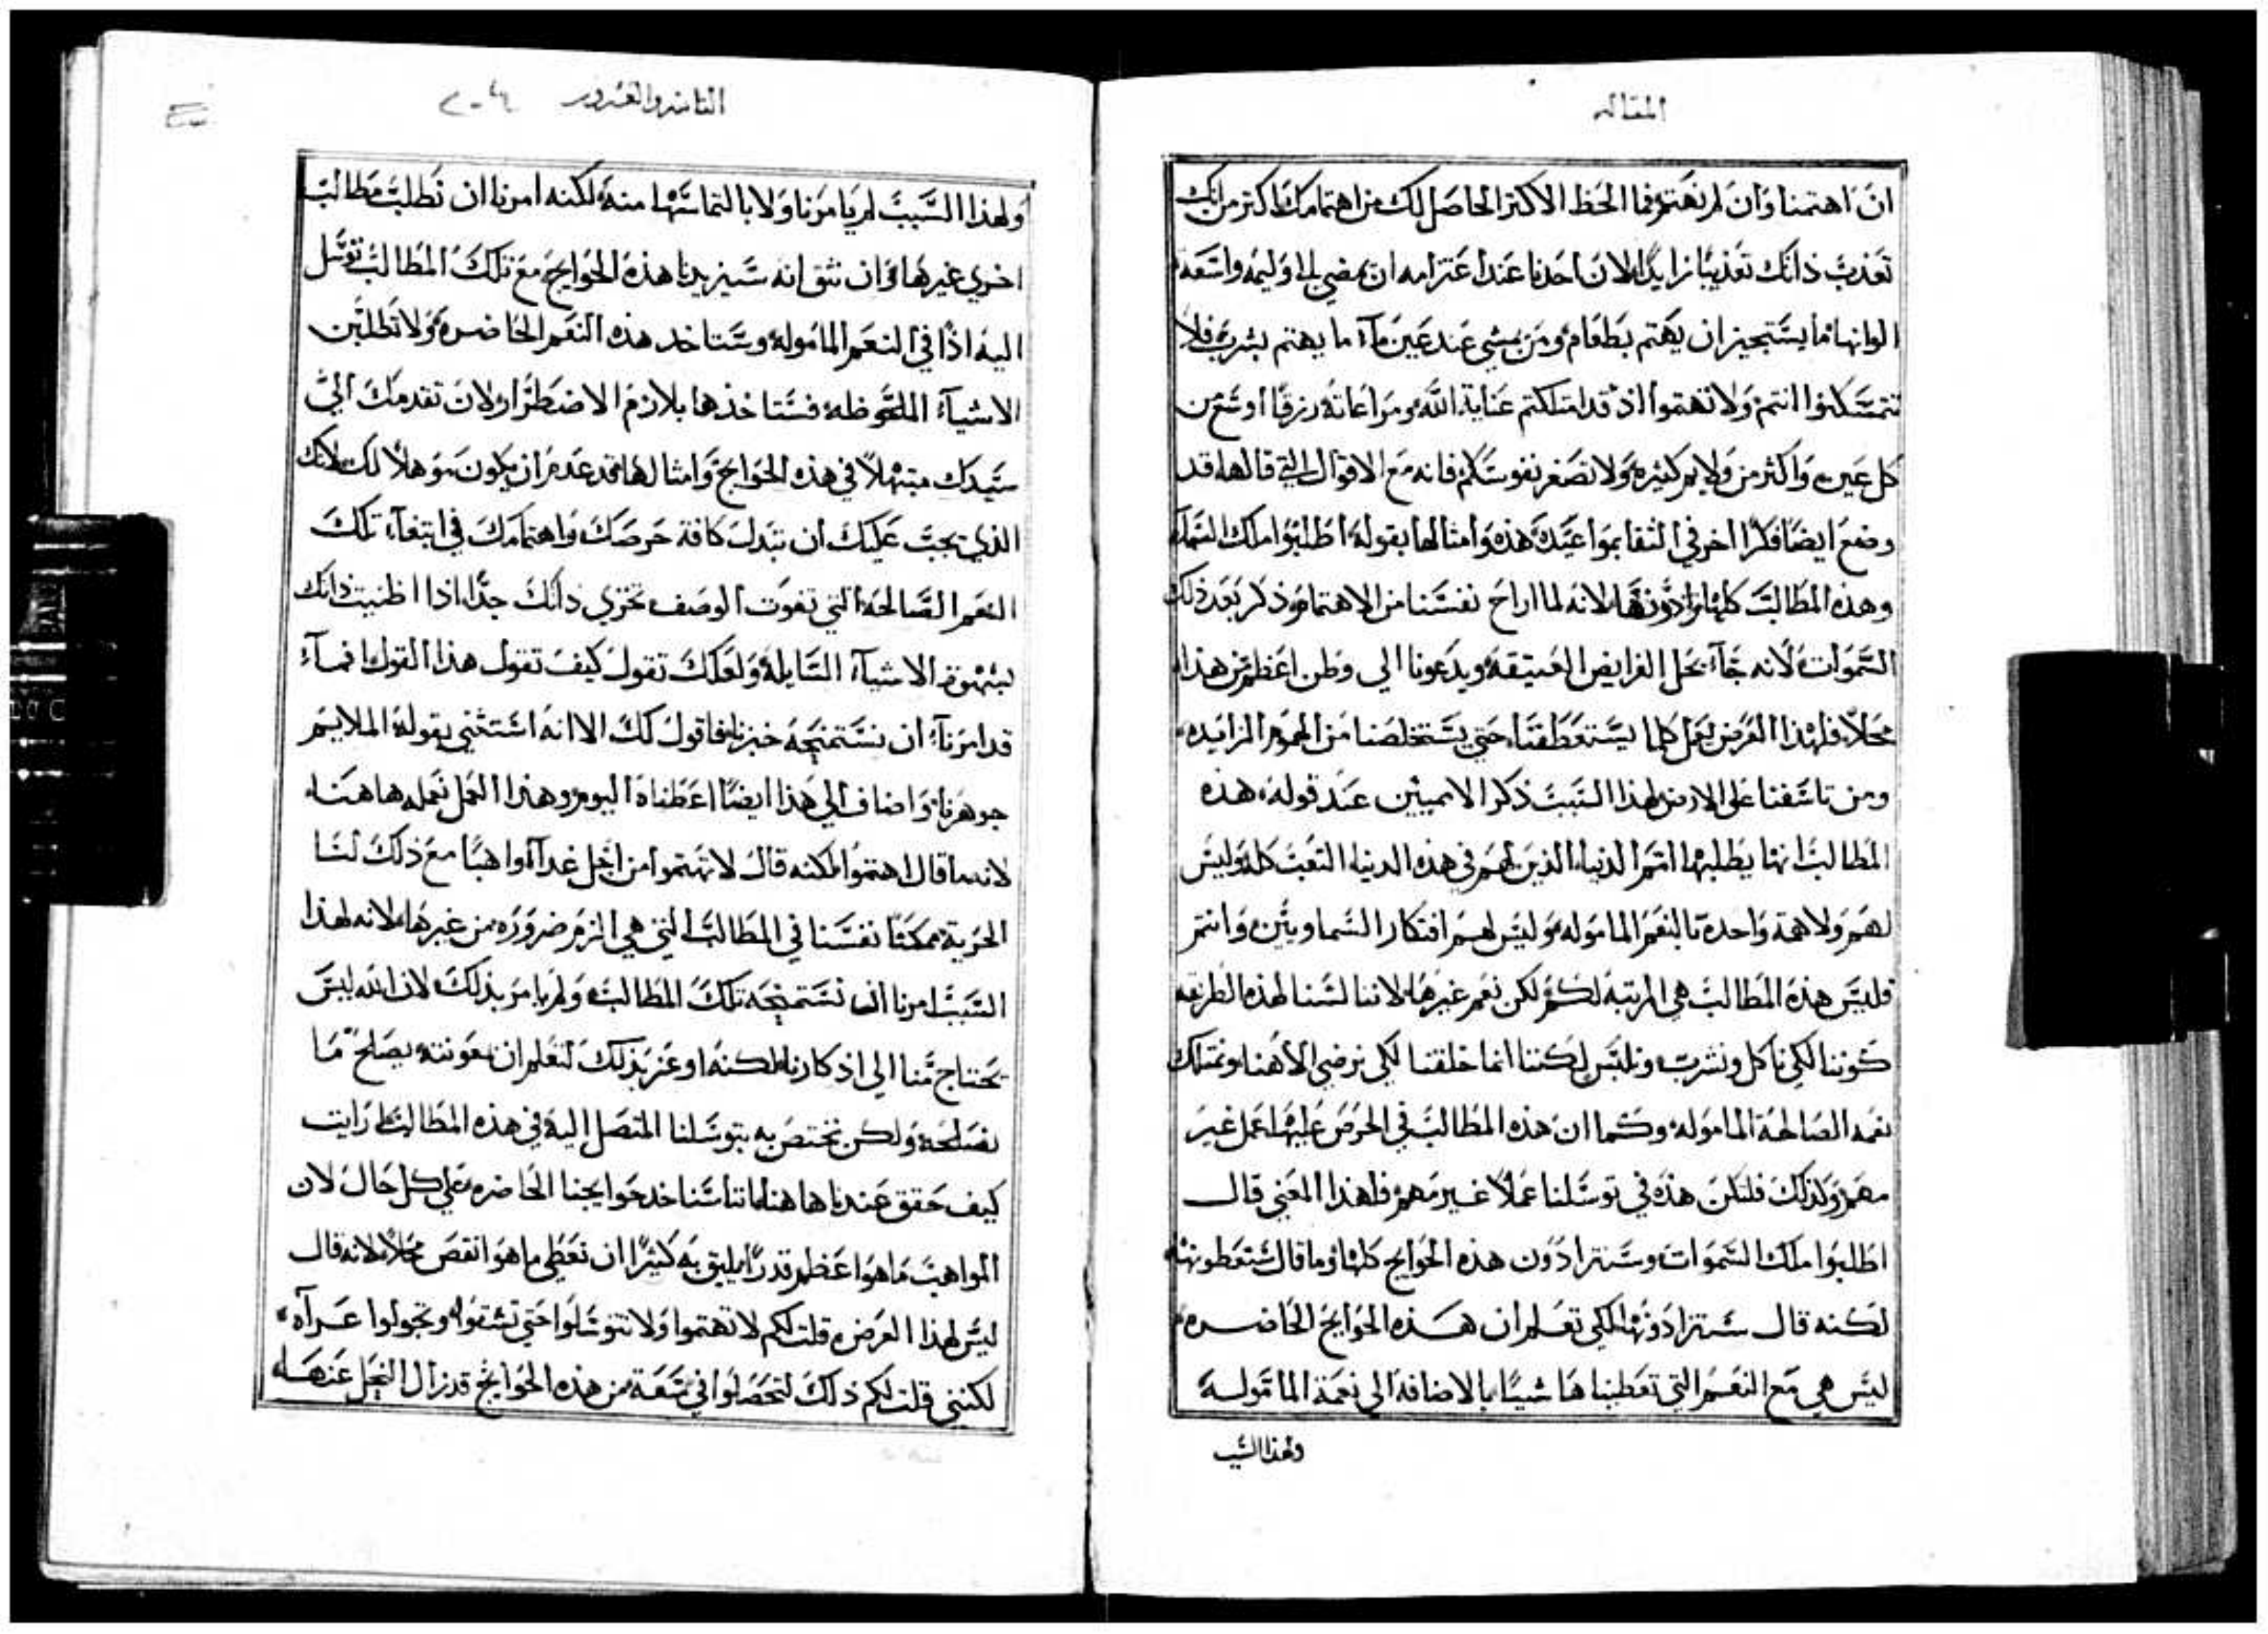 المقاله
ان اهتممنا وان لم نهتم فما الحظ الاكثر الحاصل لك من اهتمامك اكثر من انك
تعذب ذاتك تعذيبًا زايدًا لان احدنا عند اعتزامه ان يمضي الى وليمه واسعة
الوانها ما يستجيز ان يهتم بطعام ومن يمشي عند عين مآء ما يهتم بشربه فلا
تتمسكنوا انتم ولا تهتموا اذ قد امتلكتم عناية الله ومراعاته رزقًا اوسع من
كل عين واكثر من ولايم كثيره ولا تصغر نفوسكم فانه مع الاقوال التي قالها قد
وضع ايضًا فكرًا اخر في الثقه بمواعيده هذه وامثالها بقوله اطلبوا ملك السموات
وهذه المطالب كلها تزادونها لانه لما اراح نفسنا من الاهتمام ذكر بعد ذلك
السموات لانه جآء بحل الفرايض العتيقه ويدعونا الي وطن اعظم من هذا
محلاً فلهذا الغرض يعمل كلما يستعطفنا حتي يستخلصنا من الهموم الزايده
ومن تاسفنا على الارض لهذا السبب ذكر الامميين عند قوله هذه
المطالب انما يطلبها امم الدنيا الذين لهم في هذه الدنيا التعب كله وليس
لهم ولا همة واحدة بالنعم الماموله وليس لهم افتكار السماويين وانتم
فليس هذه المطالب هي المرتبة لكم لكن نعم غيرها لاننا لسنا لهذه الطريقه
كوننا لكي ناكل ونشرب ونلبس لكننا انما خلقنا لكي نرضي الاهنا ونمتلك
نعمه الصالحة الماموله وكما ان هذه المطالب في الحرص عليها عمل غير
مهم وكذلك فلتكن هذه في توسلنا عملاً غير مهم فلهذا المعني قال
اطلبوا ملك السموات وستزادون هذه الحوايج كلها وما قال ستعطونها
لكنه قال ستزادونها لكي تعلم ان هذه الحوايج الحاضره
ليس هي مع النعم التي تعطيناها شيئًا بالاضافة الى نعمة الماموله
ولهذا السبب
الثانيه والعشرون ٢٠٤
ولهذا السبب لم يامرنا ولا بالتماسها منه لكنه امرنا ان نطلب مطالب
اخري غيرها وان نثق انه سيزيدنا هذه الحوايج مع تلك المطالب توسل
اليه اذًا في النعم الماموله وستاخد هذه النعم الحاضره ولا تطلبن
الاشيآء الملحوظه فستاخذها بلازم الاضطرار لان تقدمك الي
سيدك مبتهلاً في هذه الحوايج وامثالها قد عدم ان يكون موهلاً لك لانك
الذي يجب عليك ان تبدل كافة حرصك واهتمامك في ابتغآء تلك
النعم الصالحه التي تفوت الوصف تخزي ذاتك جدًا اذا اظنيت ذاتك
بشهوة الاشيآء السايلة ولعلك تقول كيف تقول هذا القول فمآء
قد امرنآء ان نستمنحه خبزنا فاقول لك الا انه استثني بقوله الملايم
جوهرنا واضاف الي هذا ايضًا اعطناه اليوم وهذا العمل نعمله هاهنا
لانه ما قال اهتموا لكنه قال لا تهتموا من اجل غد آه واهبًا مع ذلك لنا
الحرية ممكنًا نفسنا في المطالب التي هي الزم ضروره من غيرها لانه لهذا
السبب امرنا ان نستمنحه تلك المطالب ولم يامر بذلك لان الله ليس
يحتاج منا الي اذكارنا لكنه اوعز بذلك لنعلم ان بمعونته يصلح ما
نصلحه ولكن نختص به بتوسلنا المتصل اليه في هذه المطالب ارايت
كيف حقق عندنا هاهنا اننا سناخد حوايجنا الحاضره علي كل حال لان
المواهب ما هو اعظم قدرًا يليق به كثيرًا ان نعطي ما هو انقص محلاً لانه قال
ليس لهذا الغرض قلت لكم لا تهتموا ولا تتوسلوا حتي تشقوا وتجولوا عرآه
لكنني قلت لكم ذلك لتحصلوا في سعة من هذه الحوايج قد زال البخل عنها